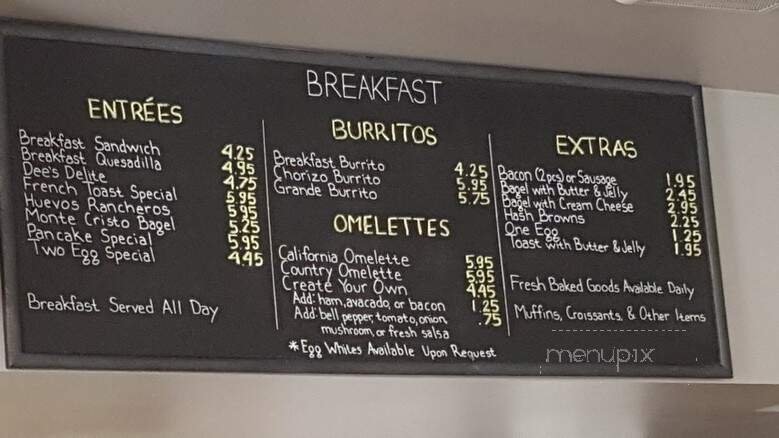 BREAKFAST
ENTRÉES
Breakfast Sandwich 4.25
Breakfast Quesadilla 4.95
Dee's Delite 4.75
French Toast Special 5.95
Huevos Rancheros 5.95
Monte Cristo Bagel 5.25
Pancake Special 5.95
Two Egg Special 4.45
Breakfast Served All Day
BURRITOS
Breakfast Burrito 4.25
Chorizo Burrito 5.95
Grande Burrito 5.75
OMELETTES
California Omelette 5.95
Country Omelette 5.95
Create Your Own 4.45
Add: ham, avacado, or bacon 1.25
Add: bell pepper, tomato, onion, .75
mushroom, or fresh salsa
*Egg Whites Available Upon Request
EXTRAS
Bacon (2pcs) or Sausage 1.95
Bagel with Butter & Jelly 2.45
Bagel with Cream Cheese 2.95
Hash Browns 2.25
One Egg 1.25
Toast with Butter & Jelly 1.95
Fresh Baked Goods Available Daily
Muffins, Croissants, & Other Items
menupix